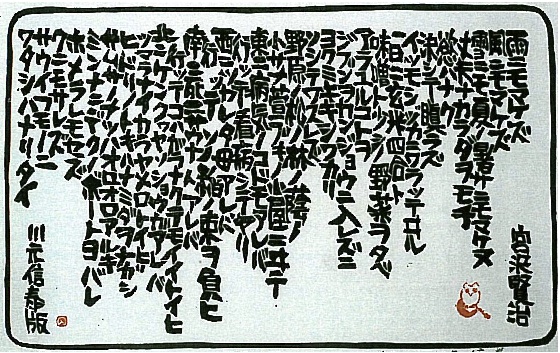 雨ニモマケズ
宮沢賢治
風ニモマケズ
雪ニモ夏ノ暑サニモマケヌ
丈夫ナカラダヲモチ
慾ハナク
決シテ瞋ラズ
イツモシヅカニワラッテヰル
一日ニ玄米四合ト
味噌ト少シノ野菜ヲタベ
アラユルコトヲ
ジブンヲカンジョウニ入レズニ
ヨクミキキシワカリ
ソシテワスレズ
野原ノ松ノ林ノ蔭ノ
小サナ萱ブキノ小屋ニヰテ
東ニ病気ノコドモアレバ
行ッテ看病シテヤリ
西ニツカレタ母アレバ
行ッテソノ稲ノ束ヲ負ヒ
南ニ死ニサウナ人アレバ
行ッテコハガラナクテモイイトイヒ
北ニケンクヮヤソショウガアレバ
ツマラナイカラヤメロトイヒ
ヒドリノトキハナミダヲナガシ
サムサノナツハオロオロアルキ
ミンナニデクノボートヨバレ
ホメラレモセズ
クニモサレズ
サウイフモノニ
ワタシハナリタイ
川元信泰版